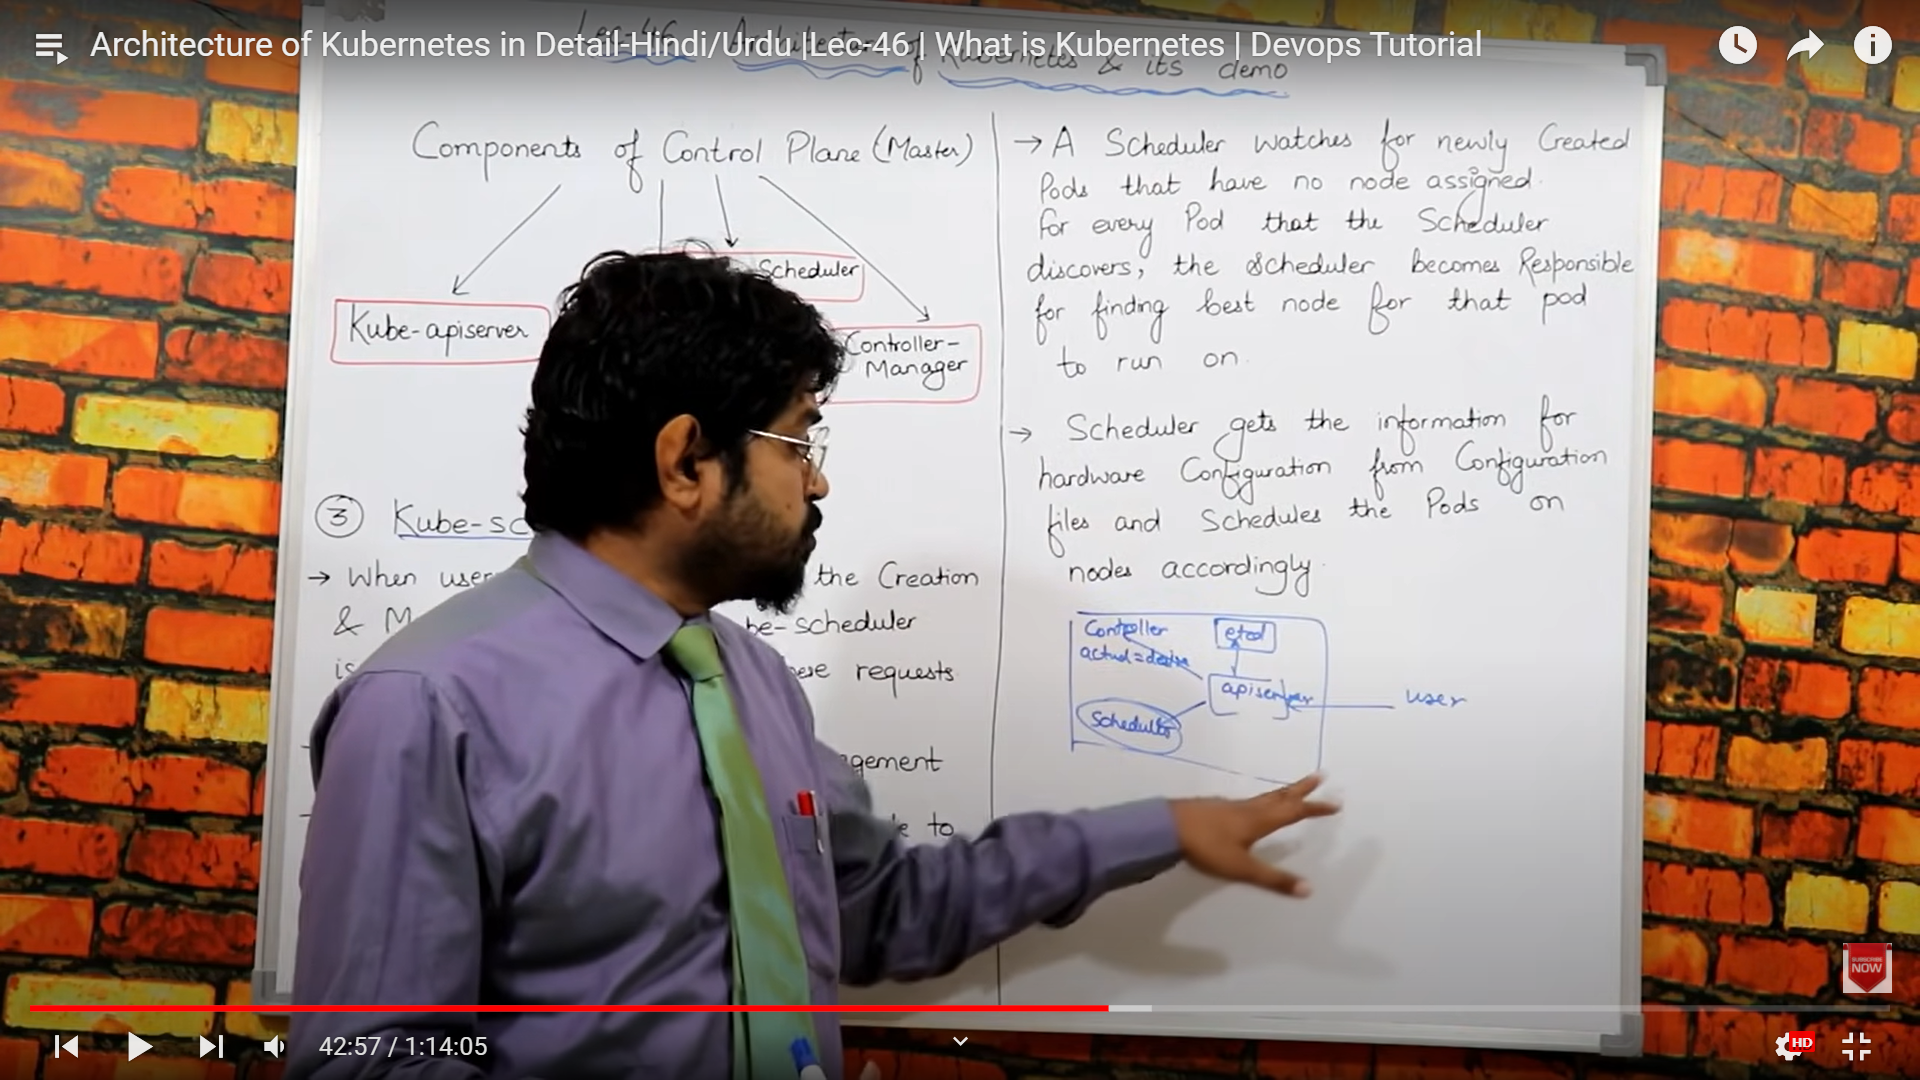 Architecture of Kubernetes in Detail-Hindi/Urdu |Lec-46 | What is Kubernetes | Devops Tutorial
Lec-46 Architecture of Kubernetes & its demo
Components of Control Plane (Master)
Scheduler
Kube-apiserver
Controller-
Manager
③ Kube-sc
→ When user the Creation
& M be-scheduler
is ese requests
gement
to
→ A Scheduler watches for newly Created
Pods that have no node assigned.
for every Pod that the Scheduler
discovers, the Scheduler becomes Responsible
for finding best node for that pod
to run on.
→ Scheduler gets the information for
hardware Configuration from Configuration
files and Schedules the Pods on
nodes accordingly.
Controller etcd
actual=desire
apiserver user
Scheduler
SUBSCRIBE
NOW
42:57 / 1:14:05
HD